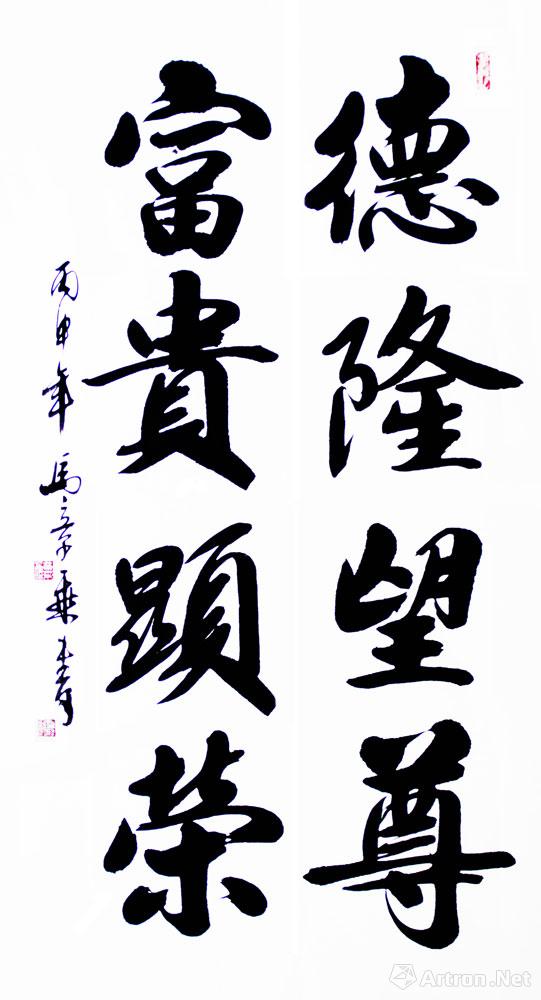 德隆望尊
富貴顯榮
丙申年馬京華書
Artron.Net